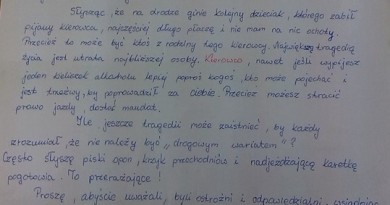 Słysząc, że na drodze ginie kolejny dzieciak, którego zabił
pijany kierowca, najczęściej długo płaczę i nie mam na nic ochoty.
Przecież to może być ktoś z rodziny tego kierowcy. Największą tragedią
życia jest utrata najbliższej osoby. Kierowco, nawet jeśli wypijesz
jeden kieliszek alkoholu lepiej poproś kogoś, kto może pojechać i
jest trzeźwy, by poprowadził za ciebie. Przecież możesz stracić
prawo jazdy, dostać mandat.
Ile jeszcze tragedii może zaistnieć, by każdy
zrozumiał, że nie należy być „drogowym wariatem"?
Często słyszę piski opon, krzyk przechodniów i nadjeżdżającą karetkę
pogotowia. To przerażające!
Proszę, abyście uważali, byli ostrożni i odpowiedzialni, wsiadając